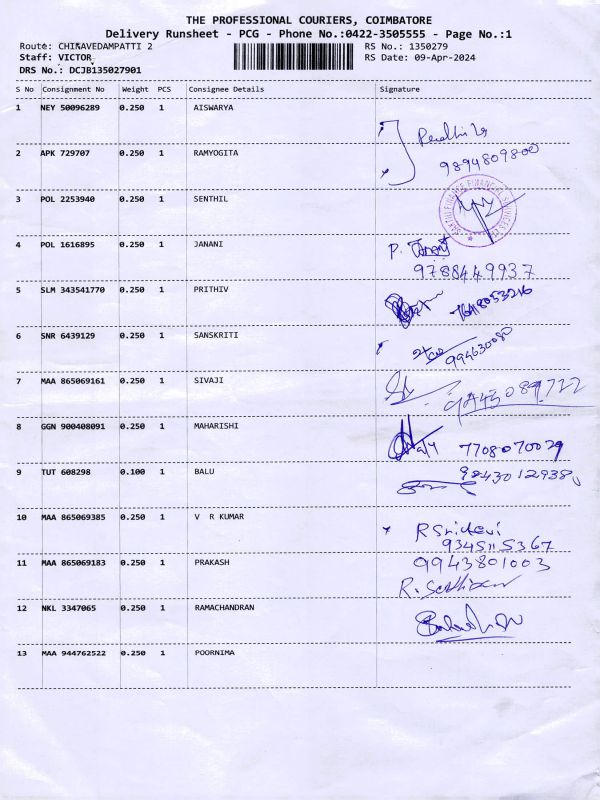 THE PROFESSIONAL COURIERS, COIMBATORE
Delivery Runsheet - PCG - Phone No.:0422-3505555 - Page No.:1
Route: CHINAVEDAMPATTI 2 RS No.: 1350279
Staff: VICTOR RS Date: 09-Apr-2024
DRS No.: DCJB135027901
S No Consignment No Weight PCS Consignee Details Signature
1 NEY 50096289 0.250 1 AISWARYA
9894809800
2 APK 729707 0.250 1 RAMYOGITA
3 POL 2253940 0.250 1 SENTHIL
4 POL 1616895 0.250 1 JANANI P.
9788449937
5 SLM 343541770 0.250 1 PRITHIV
6 SNR 6439129 0.250 1 SANSKRITI
7 MAA 865069161 0.250 1 SIVAJI
8 GGN 900408091 0.250 1 MAHARISHI 7708070029
9 TUT 608298 0.100 1 BALU
10 MAA 865069385 0.250 1 V R KUMAR R Sridevi
9345115367
11 MAA 865069183 0.250 1 PRAKASH 9943801003
12 NKL 3347065 0.250 1 RAMACHANDRAN
13 MAA 944762522 0.250 1 POORNIMA